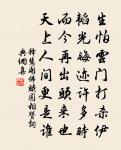 生怕云门打杀伊
韬光晦迹许多时
而今再出头来也
天上人间更是谁
释慧开佛赋国相赞词
典偶喜